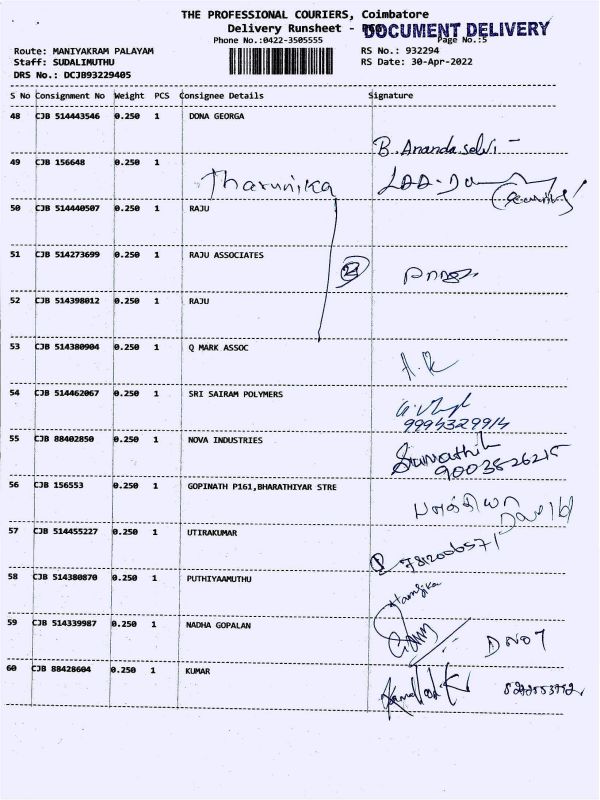 THE PROFESSIONAL COURIERS, Coimbatore
Delivery Runsheet -
DOCUMENT DELIVERY
Phone No.:0422-3505555
Page No.:5
Route: MANIYAKRAM PALAYAM
RS No.: 932294
Staff: SUDALIMUTHU
RS Date: 30-Apr-2022
DRS No.: DCJB93229405
S No Consignment No Weight PCS Consignee Details Signature
48 CJB 514443546 0.250 1 DONA GEORGA
B. Ananda selvi
49 CJB 156648 0.250 1 Tharunika
50 CJB 514440507 0.250 1 RAJU
51 CJB 514273699 0.250 1 RAJU ASSOCIATES
52 CJB 514398012 0.250 1 RAJU
53 CJB 514380904 0.250 1 Q MARK ASSOC
54 CJB 514462067 0.250 1 SRI SAIRAM POLYMERS
9994329914
55 CJB 88402850 0.250 1 NOVA INDUSTRIES
9003526215
56 CJB 156553 0.250 1 GOPINATH P161,BHARATHIYAR STRE
57 CJB 514455227 0.250 1 UTIRAKUMAR
58 CJB 514380870 0.250 1 PUTHIYAAMUTHU
59 CJB 514339987 0.250 1 NADHA GOPALAN
D NO 7
60 CJB 88428604 0.250 1 KUMAR